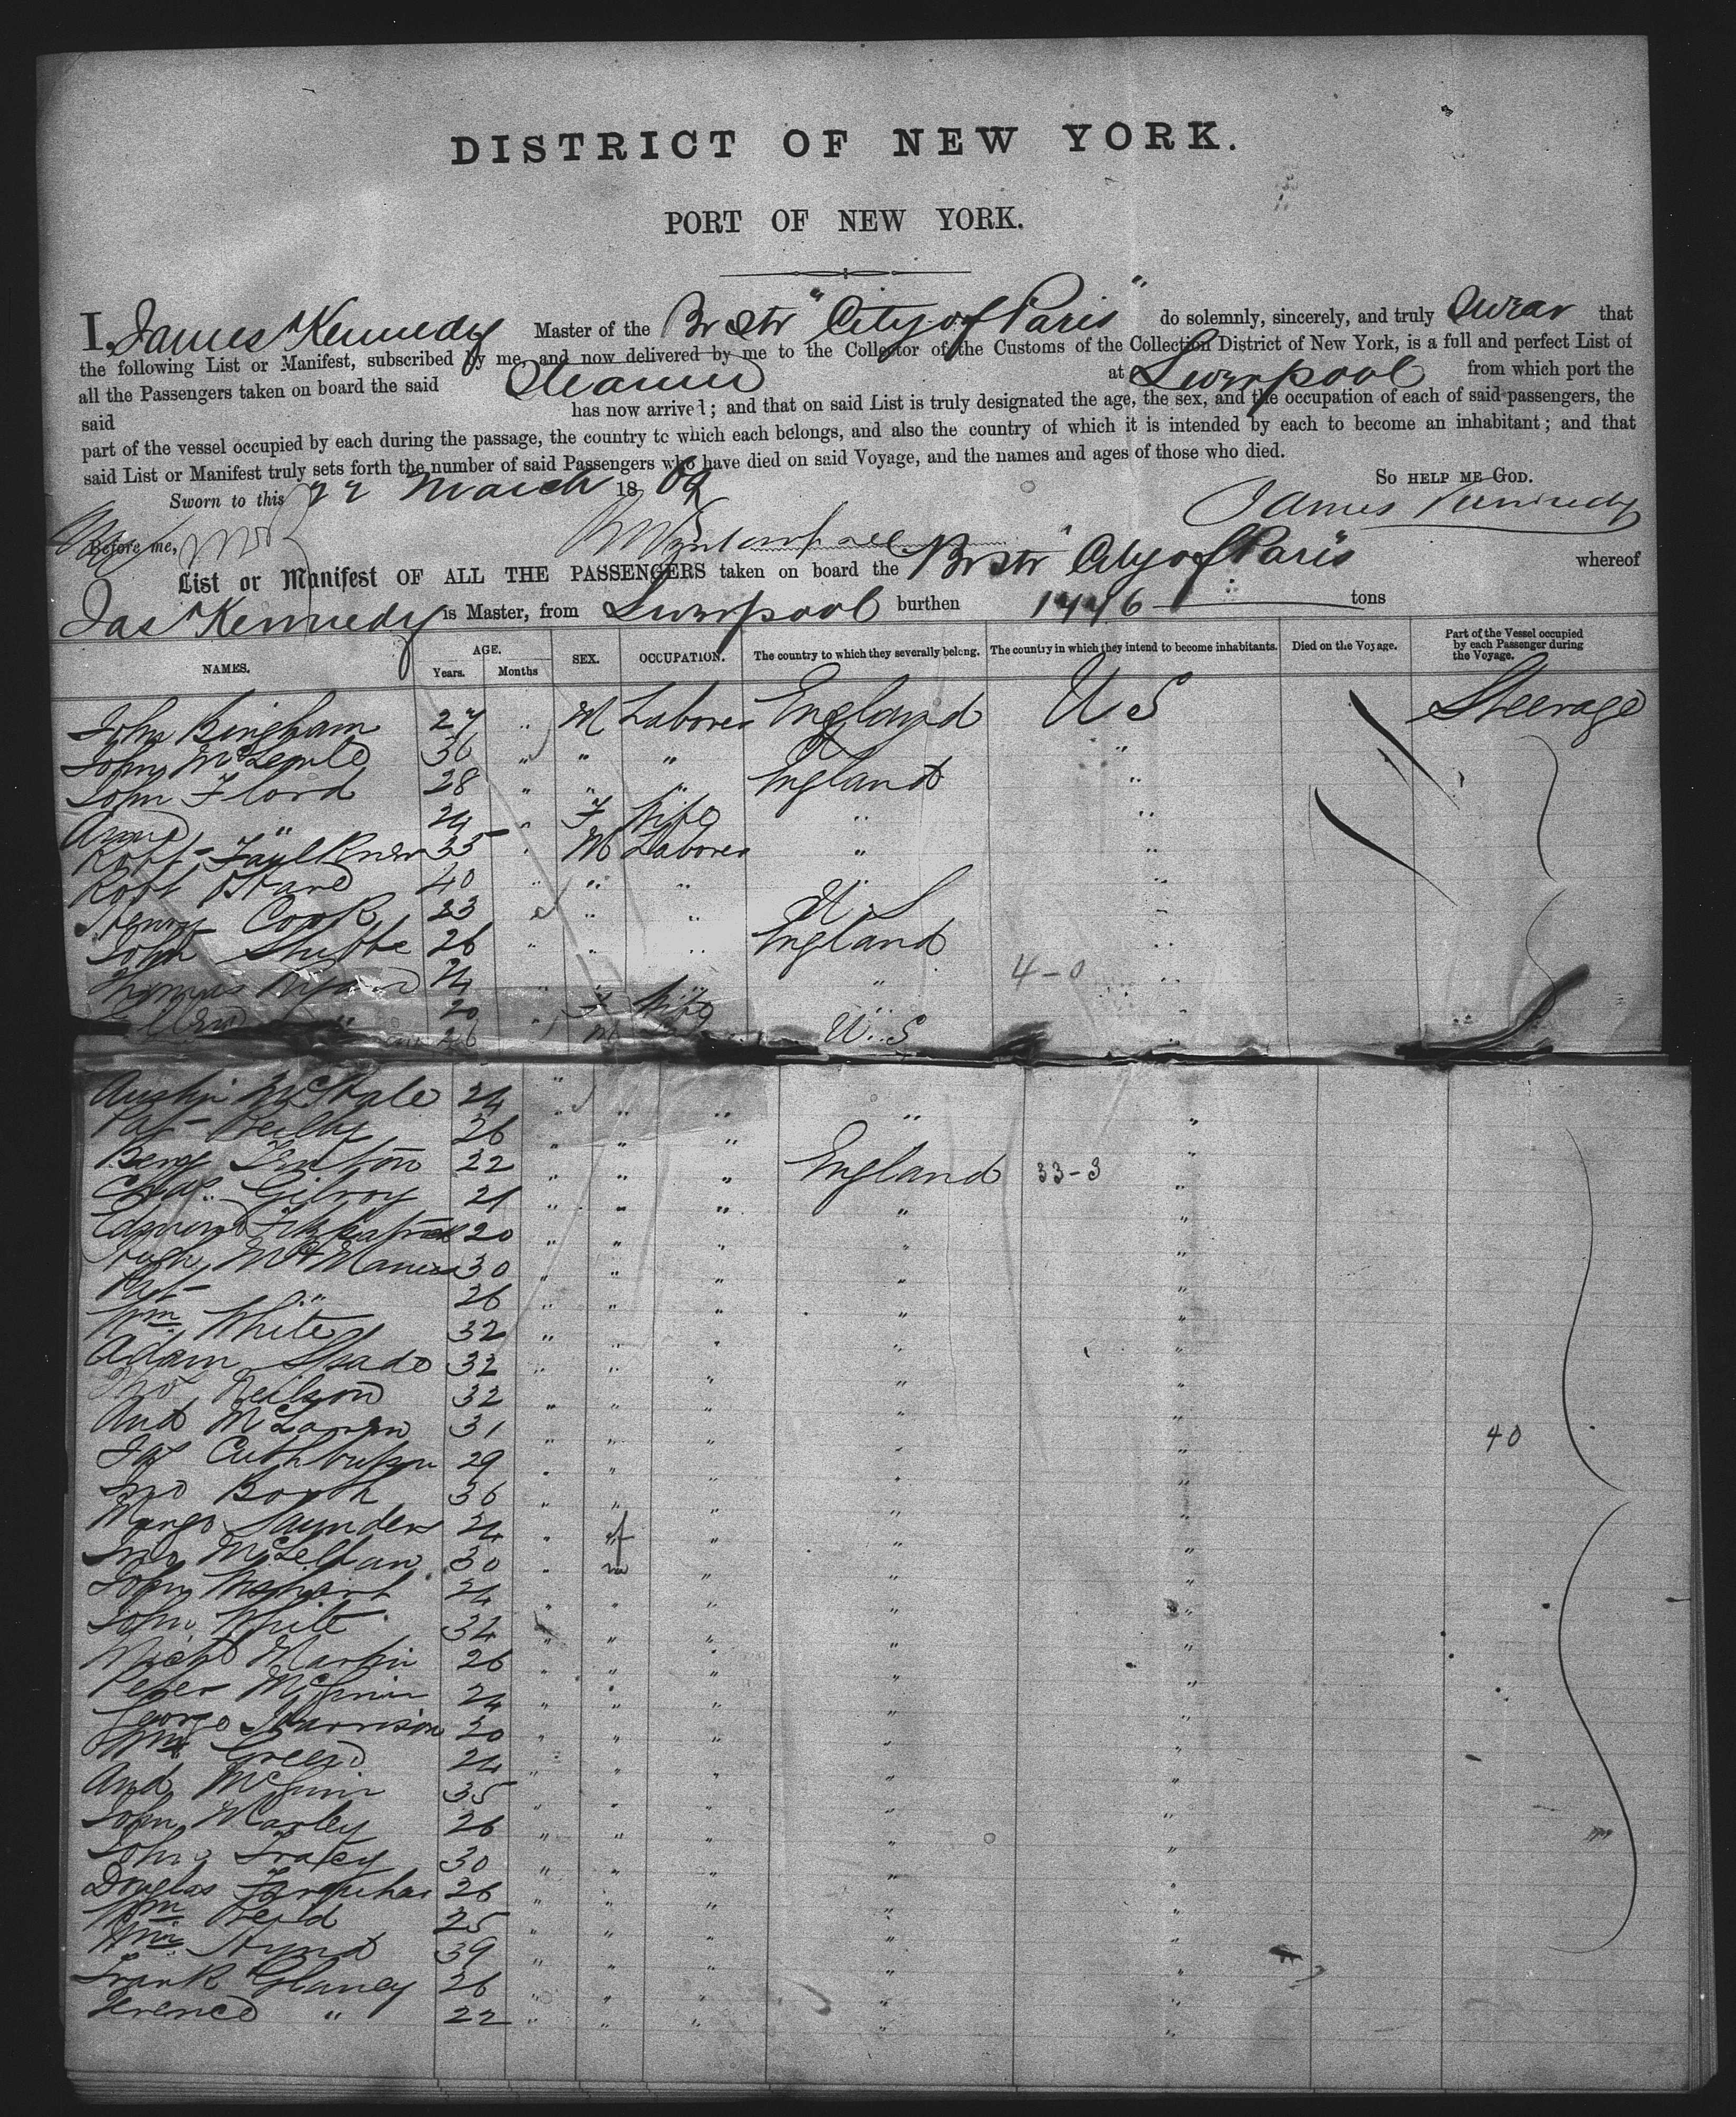 DISTRICT OF NEW YORK.
PORT OF NEW YORK.
I, James Kennedy Master of the Br Str "City of Paris" do solemnly, sincerely, and truly Swear that
the following List or Manifest, subscribed by me, and now delivered by me to the Collector of the Customs of the Collection District of New York, is a full and perfect List of
all the Passengers taken on board the said Steamer at Liverpool from which port the
said has now arrived; and that on said List is truly designated the age, the sex, and the occupation of each of said passengers, the
part of the vessel occupied by each during the passage, the country to which each belongs, and also the country of which it is intended by each to become an inhabitant; and that
said List or Manifest truly sets forth the number of said Passengers who have died on said Voyage, and the names and ages of those who died.
So HELP ME GOD.
Sworn to this 22 March 1869
James Kennedy
Before me,
List or Manifest OF ALL THE PASSENGERS taken on board the Br Str City of Paris whereof
Jas Kennedy is Master, from Liverpool burthen tons
NAMES. AGE. Years. Months SEX. OCCUPATION. The country to which they severally belong. The country in which they intend to become inhabitants. Died on the Voyage. Part of the Vessel occupied by each Passenger during the Voyage.
John Bingham 27 " M Labores England U S Steerage
John 36 " " " "
John Flord 28 " " " England "
Annie " 24 " F Wife " "
Robt Faulkner 35 " M Labores " "
Robt 40 " " " " "
Henry Cook 23 " " " U S "
John Stubbs 26 " " " England "
Thomas 24 " " " " 4-0 "
" 20 " F Wife " "
26 " M U.S "
Austin McHale 24 " " " " "
Pat Reilly 26 " " " "
Benj Fenton 22 " " " England 33-3 "
Chas. Gilroy 21 " " " " "
Edmund Fitzpatrick 20 " " " " "
Hugh McManus 30 " " " " "
Pat " 26 " " " " "
Wm White 32 " " " " "
Adam 32 " " " " "
Jno Neilson 32 " " " " "
And McLaren 31 " " " " " 40
Jas Cuthbertson 29 " " " " "
Jno Booth 36 " " " " "
Margo Saunders 24 " f " " "
Jno McLellan 30 " m " " "
John 24 " " " " "
John White 34 " " " " "
Michl Martin 26 " " " " "
Peter McGinn 24 " " " " "
George Harrison 20 " " " " "
Wm Green 24 " " " " "
And McGinn 35 " " " " "
John Marley 26 " " " " "
John Tracey 30 " " " " "
Douglas Farquhar 26 " " " " "
Wm Reid 25 " " " " "
Wm Hynd 39 " " " " "
Frank Glancy 26 " " " " "
Terence " 22 " " " " "